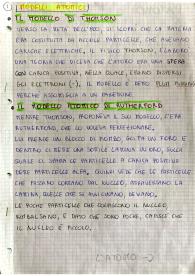 1 MODELLI ATOMICI
IL MODELLO DI THOMSON
VERSO LA METÀ DELL'800, SI SCOPRÌ CHE LA MATERIA
ERA COSTITUITA DA PICCOLE PARTICELLE, CHE AVEVANO
CARICHE ELETTRICHE, IL FISICO THOMSON, ELABORÒ
UNA TEORIA CHE DICEVA CHE L'ATOMO ERA UNA SFERA
CON CARICA POSITIVA, NELLA QUALE, ERANO DIVERSI
GLI ELETTRONI (-), IL MODELLO È DETTO PLUM PUDDING
PERCHÉ ASSOMIGLIA A UN PANETTONE.
IL MODELLO ATOMICO DI RUTHERFORD
MENTRE THOMSON, PROPONEVA IL SUO MODELLO, C'ERA
RUTHERFORD, CHE LO VOLEVA PERFEZIONARE,
LUI PRENDE UN BLOCCO DI PIOMBO, GLI FA UN FORO E
DENTRO CI METTE UNA SOTTILE LAMINA DI ORO, SULLA
QUALE CI SPARA LE PARTICELLE A CARICA POSITIVA
DETTE PARTICELLE ALFA, QUINDI VEDE CHE LE PARTICELLE
CHE PASSANO LONTANO DAL NUCLEO, ATTRAVERSANO LA
LAMINA, QUELLE CHE SI AVVICINANO, DEVIANO,
LE POCHE PARTICELLE CHE COLPISCONO IL NUCLEO
RIMBALZANO, E DATO CHE SONO POCHE, CAPISCE CHE
IL NUCLEO È PICCOLO.
L'ATOMO